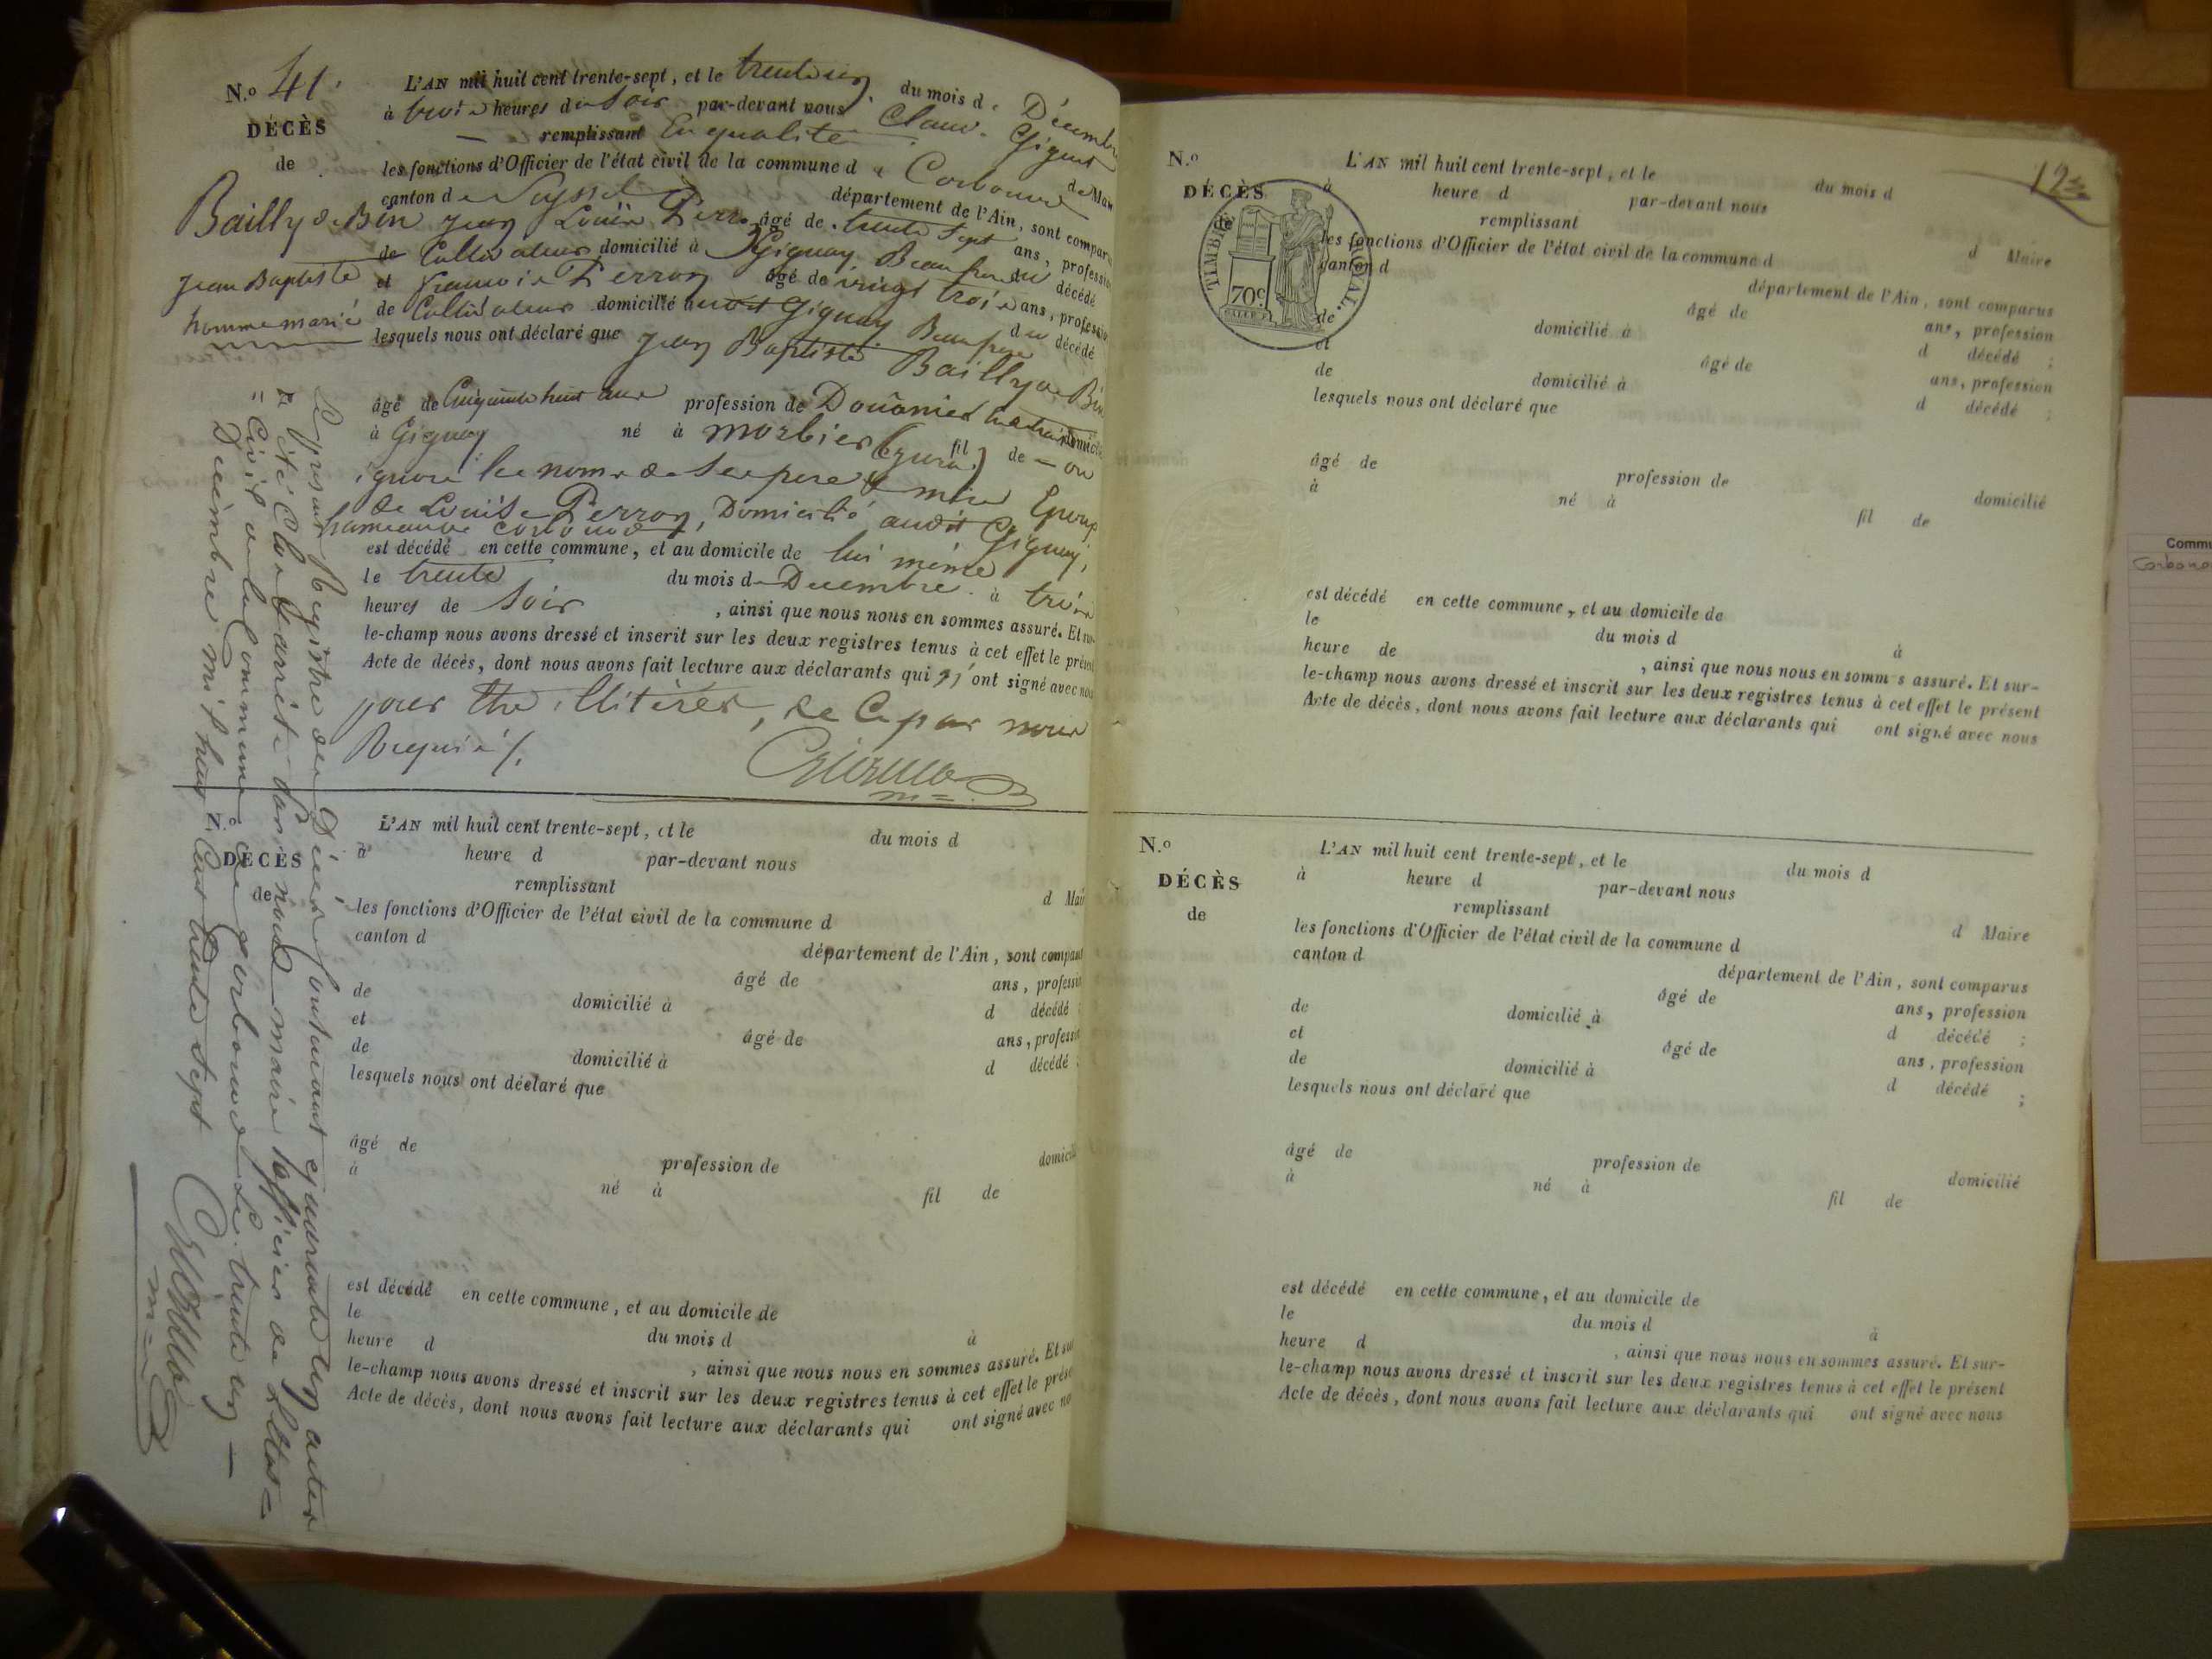 N.o 41.
DÉCÈS
de
Bailly de Bin
Jean Baptiste
homme marié
L'AN mil huit cent trente-sept, et le trente un du mois de Décembre
à trois heures du Soir par-devant nous Claude Giguet
remplissant En qualité de Mair
les fonctions d'Officier de l'état civil de la commune de Corbonod
canton de Seyssel département de l'Ain, sont comparu
Jean Louis Perron âgé de trente Sept ans, professio
de Cultivateur domicilié à Gignay Beaufrere du décédé
et François Perron âgé de vingt trois ans, profession
de Cultivateur domicilié audit Gignay Beaufrere du décédé
lesquels nous ont déclaré que Jean Baptiste Bailly de Bin
âgé de Cinquante huit ans profession de Douanier domicil
à Gignay né à morbier (Jura) fil de — on
ignore les noms de Ses pere & mere Epoux
de Louise Perron, Domicilié audit Gignay,
hameau de Corbonod
est décédé en cette commune, et au domicile de lui même
le trente du mois de Décembre à trois
heures de Soir , ainsi que nous nous en sommes assuré. Et sur-
le-champ nous avons dressé et inscrit sur les deux registres tenus à cet effet le présent
Acte de décès, dont nous avons fait lecture aux déclarants qui n' ont signé avec nous
pour être illitérés, de Ce par nous
Requis /.
Le présent Registre des Décès Contenant quarante un actes
a été Clos & arrêté par nous maire officier de l'état
Civil de la Commune de Corbonod le trente un
Décembre mil huit Cent trente Sept
N.o
DÉCÈS
de
L'AN mil huit cent trente-sept, et le du mois d
à heure d par-devant nous
remplissant d Mai
les fonctions d'Officier de l'état civil de la commune d
canton d département de l'Ain, sont comparus
âgé de ans, profession
de domicilié à d décédé ;
et âgé de ans, profession
de domicilié à d décédé ;
lesquels nous ont déclaré que
âgé de profession de domicili
à né à fil de
est décédé en cette commune, et au domicile de
le du mois d à
heure d , ainsi que nous nous en sommes assuré. Et sur
le-champ nous avons dressé et inscrit sur les deux registres tenus à cet effet le prése
Acte de décès, dont nous avons fait lecture aux déclarants qui ont signé avec no
12
N.o
DÉCÈS
de
TIMBRE ROYAL.
70c
L'AN mil huit cent trente-sept, et le du mois d
à heure d par-devant nous
remplissant d Maire
les fonctions d'Officier de l'état civil de la commune d
canton d département de l'Ain, sont comparus
âgé de ans, profession
de domicilié à d décédé ;
et âgé de ans, profession
de domicilié à d décédé ;
lesquels nous ont déclaré que
âgé de profession de domicilié
à né à fil de
est décédé en cette commune, et au domicile de
le du mois d à
heure de , ainsi que nous nous en somm s assuré. Et sur-
le-champ nous avons dressé et inscrit sur les deux registres tenus à cet effet le présent
Acte de décès, dont nous avons fait lecture aux déclarants qui ont signé avec nous
N.o
DÉCÈS
de
L'AN mil huit cent trente-sept, et le du mois d
à heure d par-devant nous
remplissant d Maire
les fonctions d'Officier de l'état civil de la commune d
canton d département de l'Ain, sont comparus
âgé de ans, profession
de domicilié à d décédé ;
et âgé de ans, profession
de domicilié à d décédé ;
lesquels nous ont déclaré que
âgé de profession de domicilié
à né à fil de
est décédé en cette commune, et au domicile de
le du mois d à
heure d , ainsi que nous nous en sommes assuré. Et sur-
le-champ nous avons dressé et inscrit sur les deux registres tenus à cet effet le présent
Acte de décès, dont nous avons fait lecture aux déclarants qui ont signé avec nous
Commu
Corbono